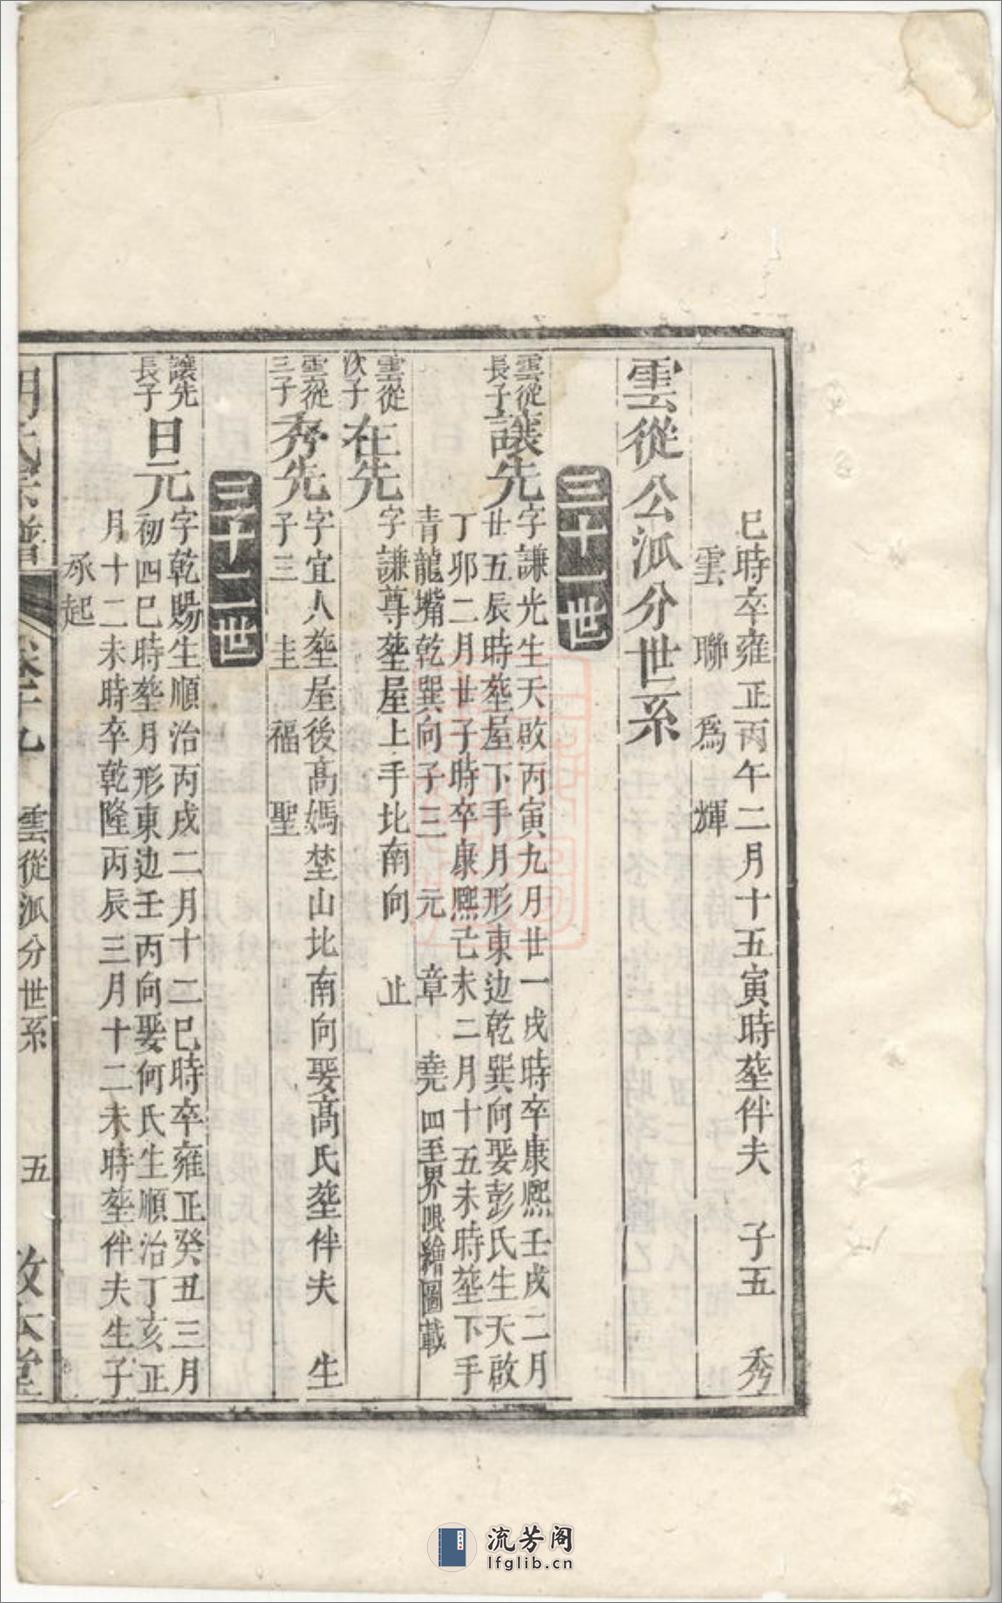 巳時卒雍正丙午二月十五寅時塟伴夫　子五　秀
雲　聯　為　輝
雲從公派分世系
三十一世
雲從長子讓先字謙光生天啟丙寅九月廿一戌時卒康熙壬戌二月
廿五辰時塟屋下手月形東边乾巽向娶彭氏生天啟
丁卯二月廿子時卒康熙己未二月十五未時塟下手
青龍嘴乾巽向子三　元　章　堯　四至界限繪圖載
雲從次子在先字謙尊塟屋上手比南向　止
雲從三子秀先字宜人塟屋後高媽埜山比南向娶高氏塟伴夫　生
子三　圭　福　聖
三十二世
讓先長子日元字乾賜生順治丙戌二月十二巳時卒雍正癸丑三月
初四巳時塟月形東边壬丙向娶何氏生順治丁亥正
月十二未時卒乾隆丙辰三月十二未時塟伴夫生子
承起
氏宗譜　卷十九　雲從派分世系　五　敦本堂
流芳阁
lfglib.cn